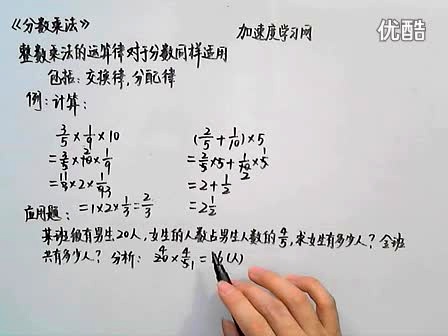 优酷
《分数乘法》
加速度学习网
整数乘法的运算律对于分数同样适用
包括：交换律，分配律
例：计算：
3/5 × 1/9 × 10
= 3/5 × 10 × 1/9
= 3 × 2 × 1/9
= 1 × 2 × 1/3 = 2/3
(2/5 + 1/10) × 5
= 2/5 × 5 + 1/10 × 5
= 2 + 1/2
= 2 1/2
应用题：
某班级有男生20人，女生的人数占男生人数的4/5，求女生有多少人？全班
共有多少人？ 分析： 20 × 4/5 = 16(人)